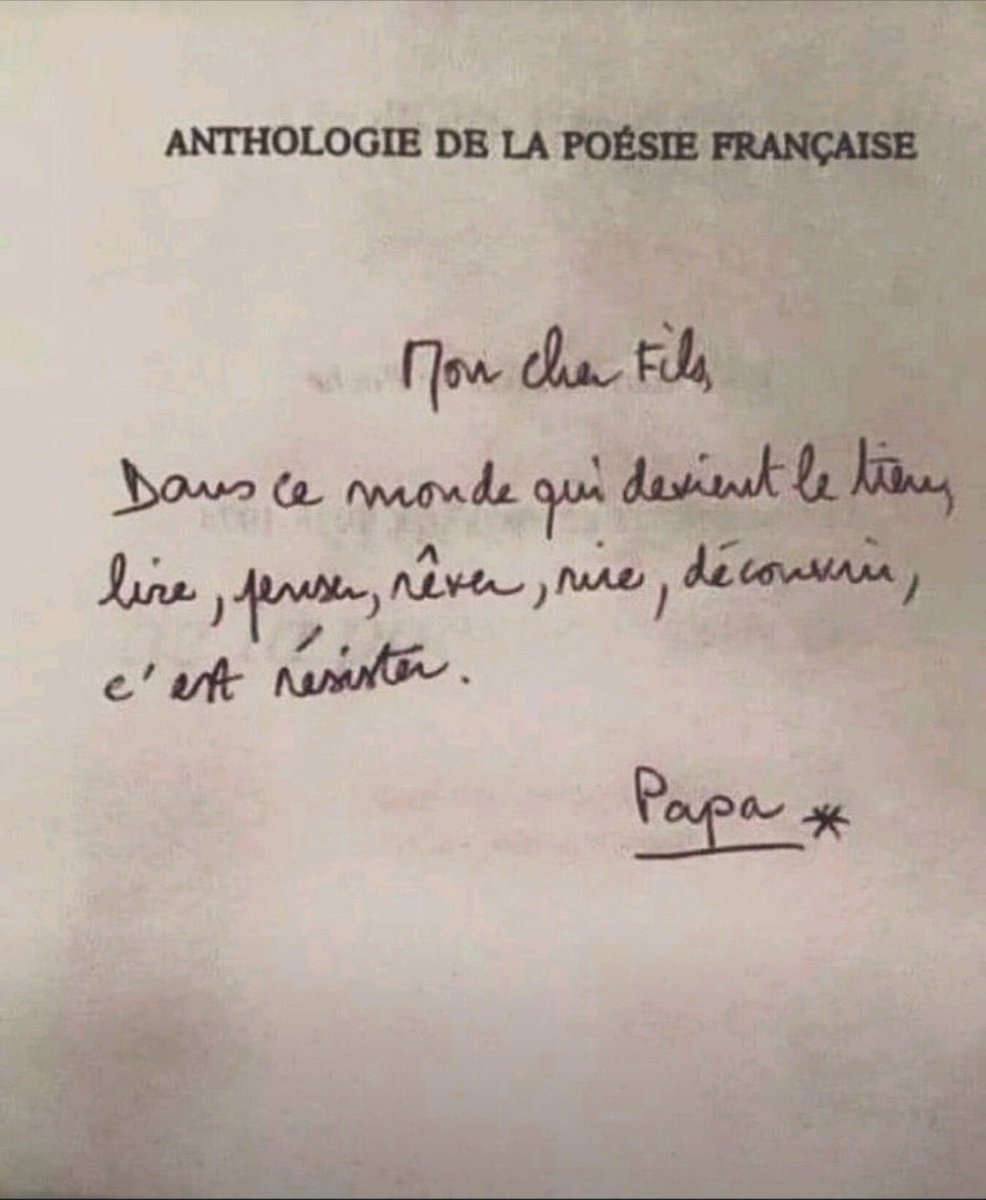 ANTHOLOGIE DE LA POÉSIE FRANÇAISE
Mon cher Fils,
Dans ce monde qui devient le tien,
lire, penser, rêver, rire, découvrir,
c'est résister.
Papa *